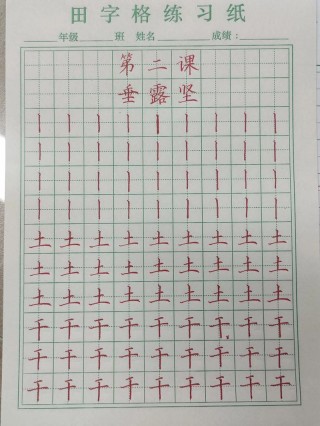 田字格练习纸
年级 班 姓名 成绩：
第二课
垂露坚
丨丨丨丨丨丨丨丨丨
丨丨丨丨丨丨丨丨丨
丨丨丨丨丨丨丨丨丨
丨丨丨丨丨丨丨丨丨
土土土土土土土土土
土土土土土土土土土
土土土土土土土土土
干干干干干干干干干
干干干干干干干干干
干干干干干干干干干